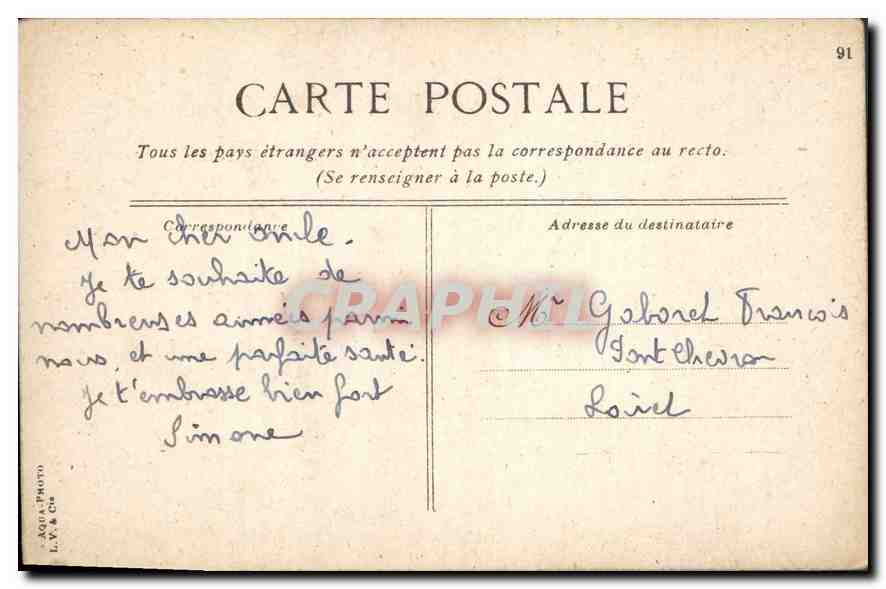 91
CARTE POSTALE
Tous les pays étrangers n'acceptent pas la correspondance au recto.
(Se renseigner à la poste.)
Correspondance
Mon cher oncle.
Je te souhaite de
nombreuses années parmi
nous, et une parfaite santé.
Je t'embrasse bien fort
Simone
Adresse du destinataire
Mr Gaboret François
Pont Chevron
Loiret
AQUA-PHOTO
L. V. & Cie
CRAPHIL